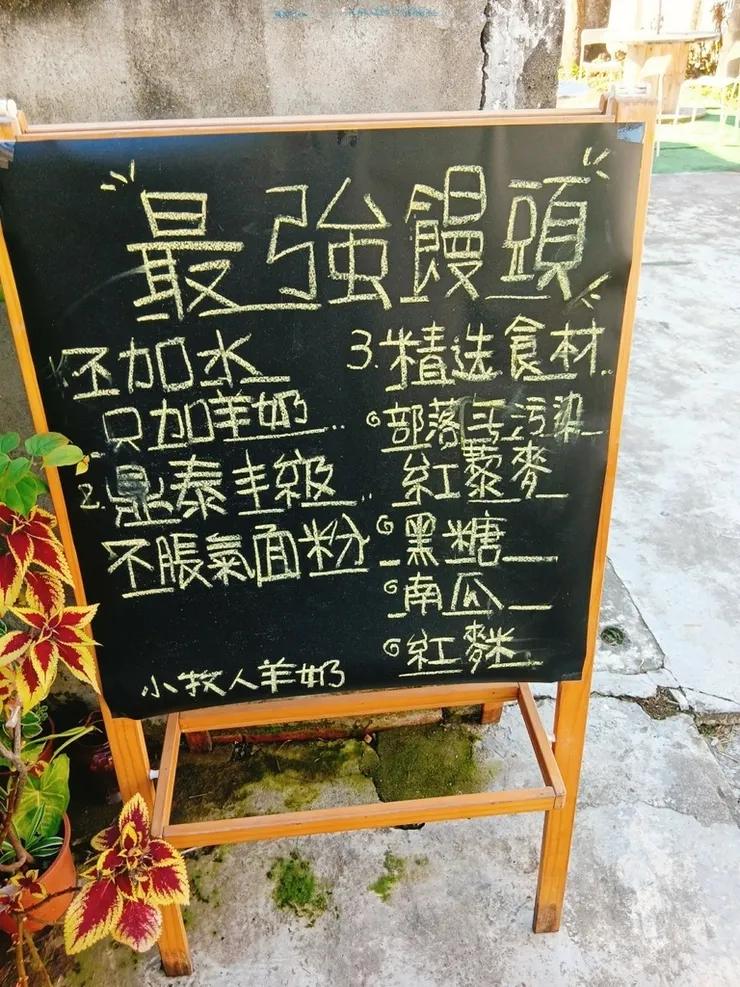 最強饅頭
1. 不加水
只加羊奶..
2. 鼎泰丰級..
不脹氣面粉
小牧人羊奶
3. 精选食材..
部落无污染
紅藜麥
黑糖
南瓜
紅麴